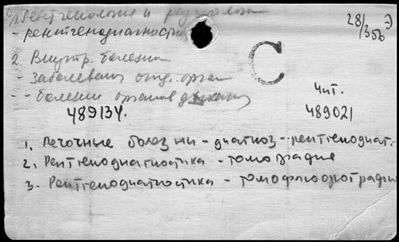 Рентгенология и радиология
28/356 Э
- рентгенодиагностика
2. Внутр. болезни
С
- Заболевания отд. орган
- болезни органов дыхания
Чит.
489134.
489021
1. Легочные болезни - диагноз - рентгенодиагн.
2. Рентгенодиагностика - томография
3. Рентгенодиагностика - томофлюорография